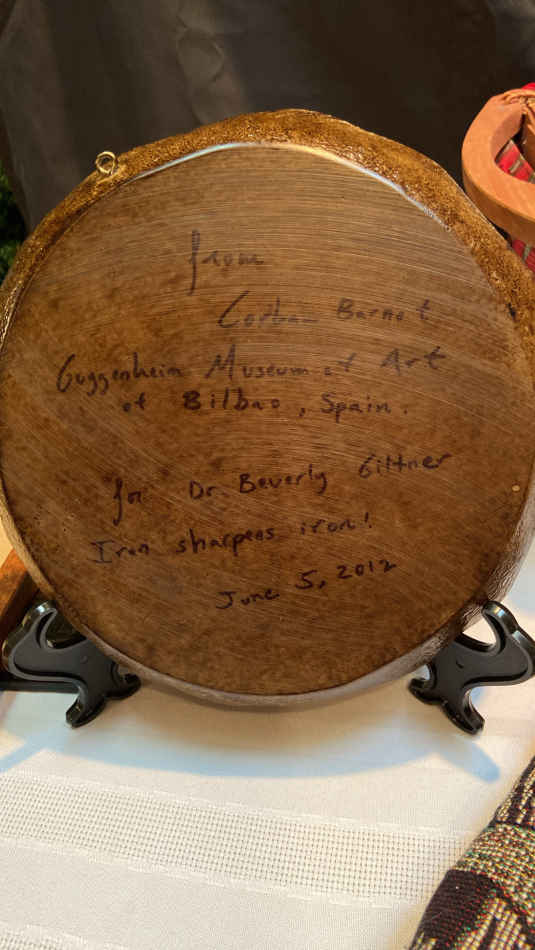 from
Corban Barnet
Guggenheim Museum of Art
of Bilbao, Spain.
for Dr. Beverly Giltner
Iron sharpens iron!
June 5, 2012